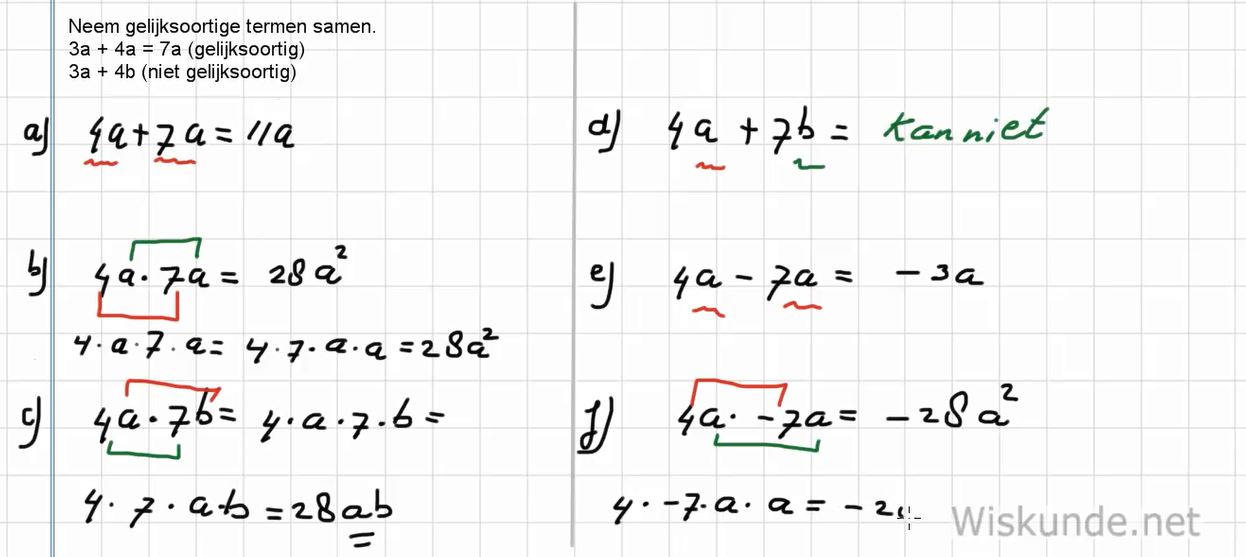 Neem gelijksoortige termen samen.
3a + 4a = 7a (gelijksoortig)
3a + 4b (niet gelijksoortig)
a) 4a + 7a = 11a
b) 4a · 7a = 28a²
4 · a · 7 · a = 4 · 7 · a · a = 28a²
c) 4a · 7b = 4 · a · 7 · b =
4 · 7 · a · b = 28ab
d) 4a + 7b = kan niet
e) 4a - 7a = -3a
f) 4a · -7a = -28a²
4 · -7 · a · a = -2
Wiskunde.net